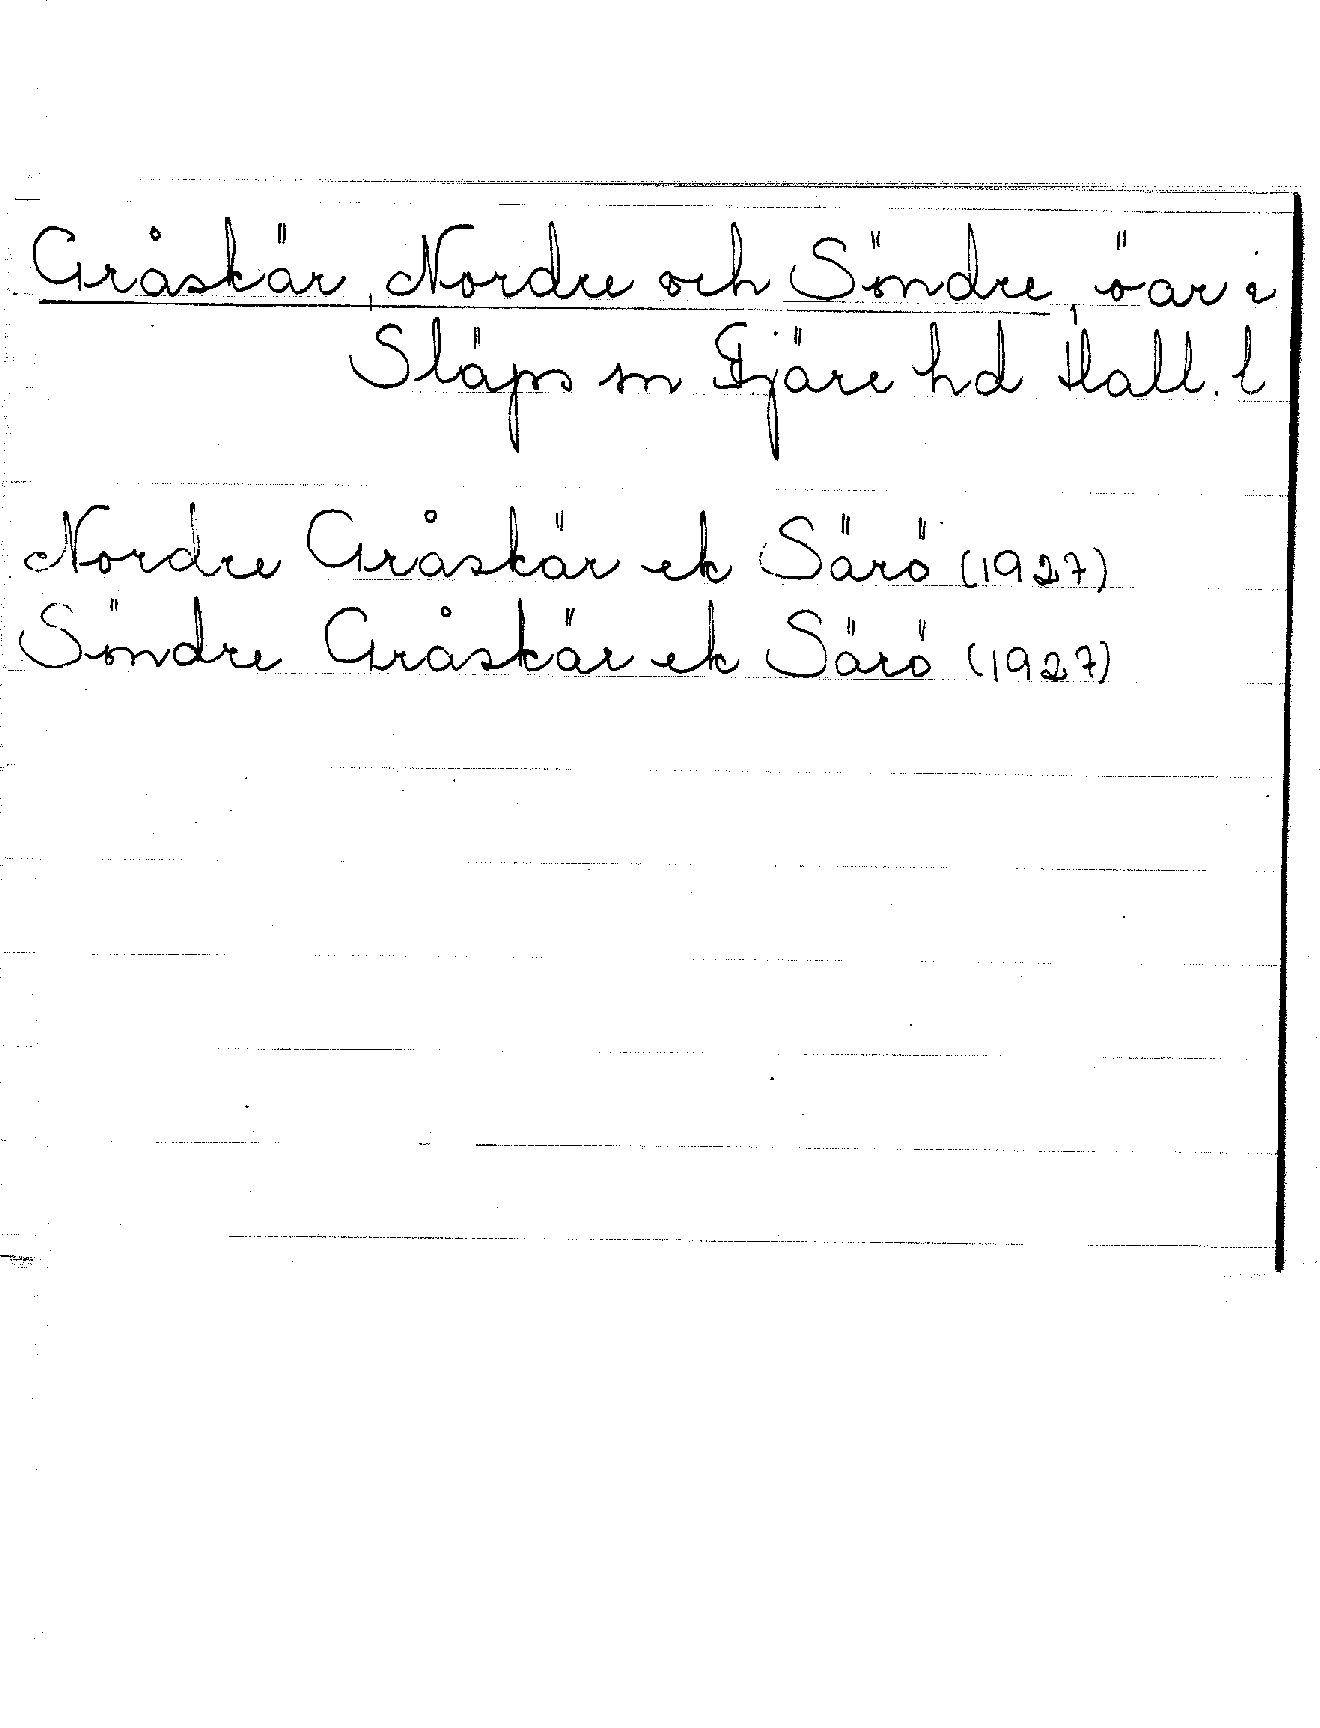 Gråskär, Nordre och Söndre, öar i
Släps sn Fjäre hd Hall. l
Nordre Gråskär ek Särö (1927)
Söndre Gråskär ek Särö (1927)